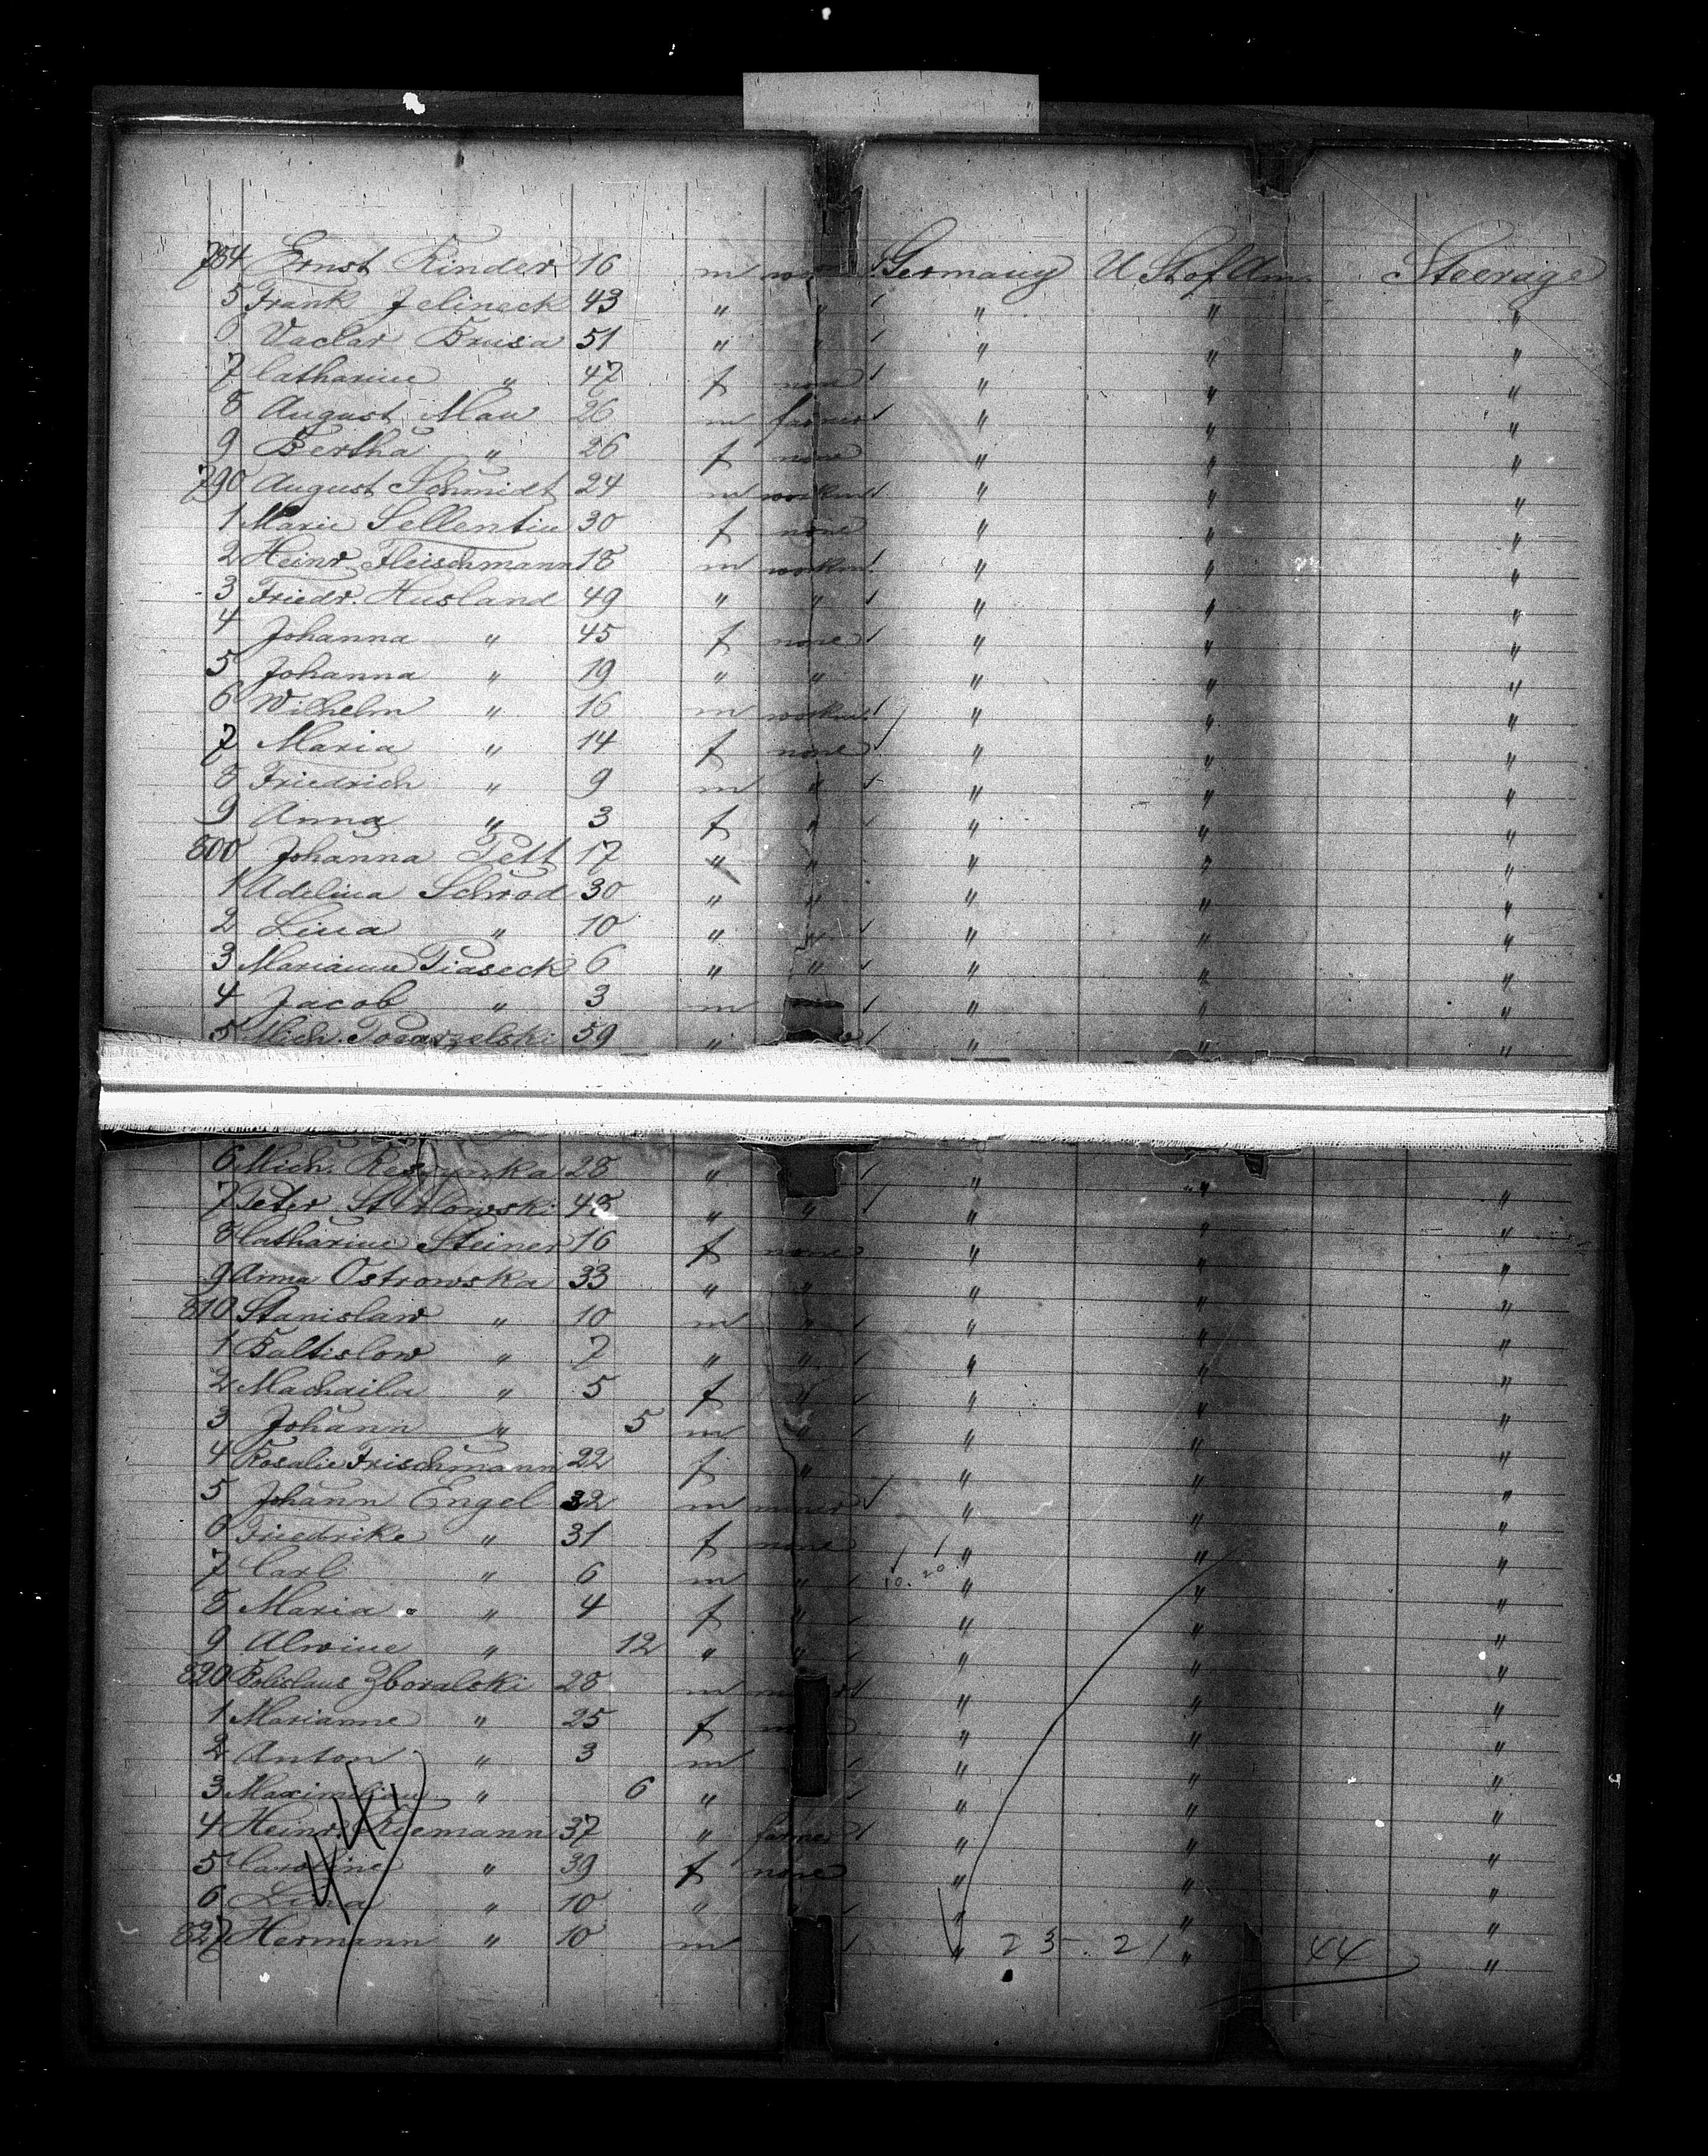 784 Ernst Kinder 16 m Germany U St of Am. Steerage
5 Frank Jelineck 43 " " " " "
6 Vaclav Brusa 51 " " " " "
7 Catharine " 47 f none " " "
8 August Mau 26 m farmer " " "
9 Bertha " 26 f none " " "
790 August Schmidt 24 m workm " " "
1 Marie Sellentin 30 f none " " "
2 Heinr. Fleischmann 18 m workm " " "
3 Friedr. Husland 49 " " " " "
4 Johanna " 45 f none " " "
5 Johanna " 19 " " " " "
6 Wilhelm " 16 m workm " " "
7 Maria " 14 f none " " "
8 Friedrich " 9 m " " " "
9 Anna " 3 f " " " "
800 Johanna Pett 17 " " " " "
1 Adelina Schrod 30 " " " " "
2 Lina " 10 " " " " "
3 Marianne Piaseck 6 " " " " "
4 Jacob " 3 m " " "
5 Mich. 59 " " " "
6 Mich. 28 " " " "
7 Peter 48 " " " " "
8 Catharine Steiner 16 f none " " "
9 Anna Ostrowska 33 " " " " "
810 Stanislaw " 10 m " " " "
1 Baltislow " 7 " " " " "
2 Machaila " 5 f " " " "
3 Johann " 5 m " " " "
4 Rosalie Frischmann 22 f " " " "
5 Johann Engel 32 m miner " " "
6 Friedrike " 31 f none " " "
7 Carl " 6 m " " " "
8 Maria " 4 f " " " "
9 Alwine " 12 " " " " "
820 Bolislaus Zboralski 28 m " " "
1 Marianne " 25 f " " "
2 Anton " 3 m " " "
3 Maximilian " 6 " " " "
4 Heinr. 37 " farmer " " "
5 Caroline " 39 f none " " "
6 Lina " 10 " " " "
827 Hermann " 10 m " 23. 21 " 44 "